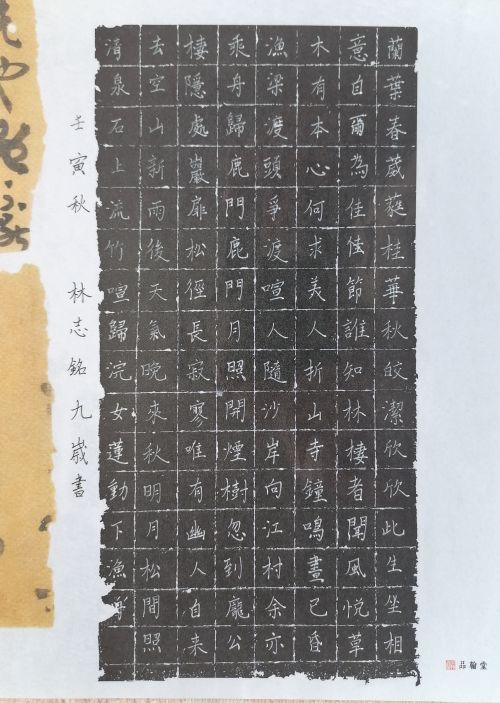 蘭葉春葳蕤桂華秋皎潔欣欣此生坐相
意自爾為佳佳節誰知林棲者聞風悅草
木有本心何求美人折山寺鐘鳴晝已昏
漁梁渡頭爭渡喧人隨沙岸向江村余亦
乘舟歸鹿門鹿門月照開煙樹忽到龐公
棲隱處巖扉松徑長寂寥唯有幽人自来
去空山新雨後天氣晚來秋明月松間照
清泉石上流竹喧歸浣女蓮動下漁舟
壬寅秋 林志銘九歲書
品翰堂